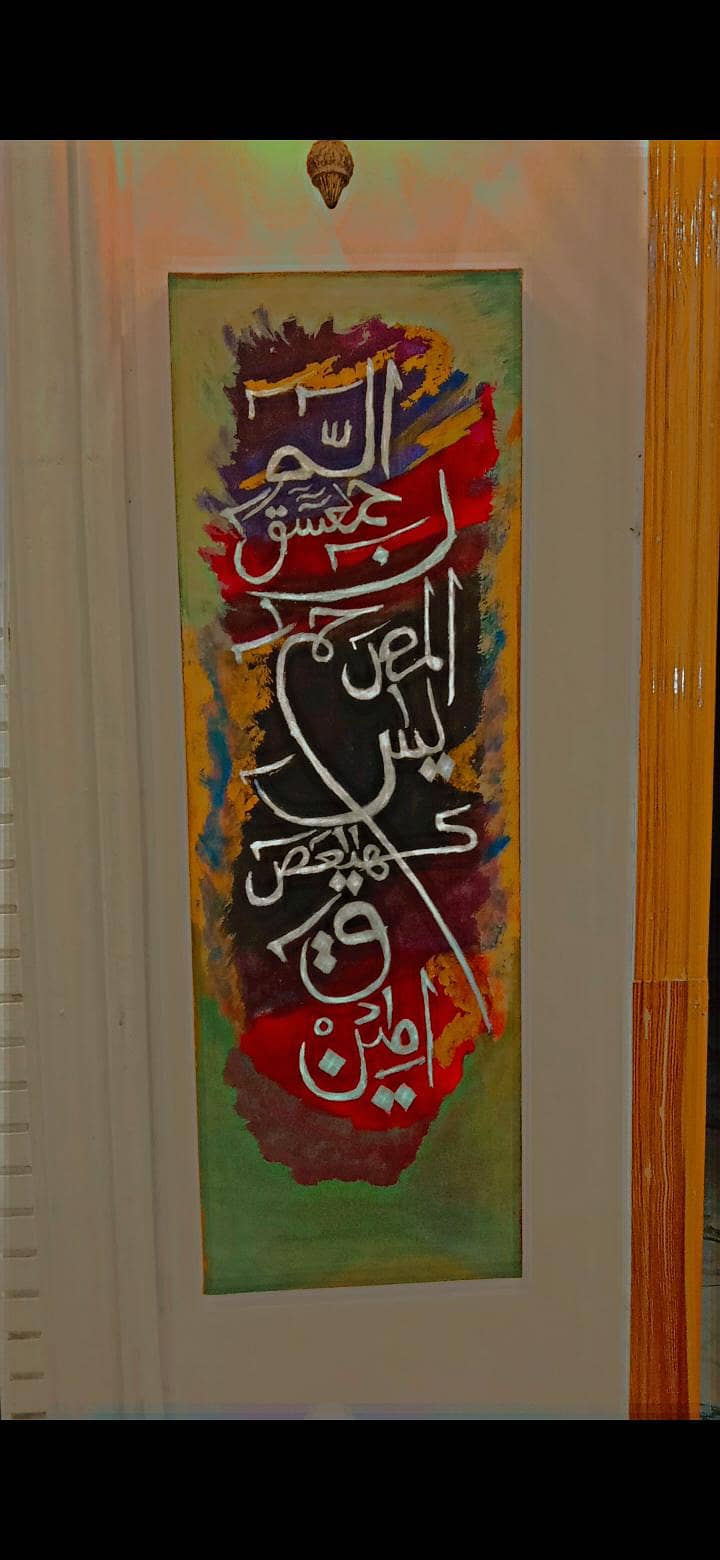 الّم
حمعسق
ن
المص حم
يس
كهيعص
ق
امين